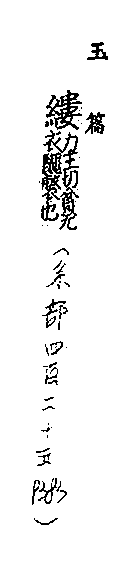 玉篇
縷
力主切貧无
衣醜弊也
（糸部四百二十五）